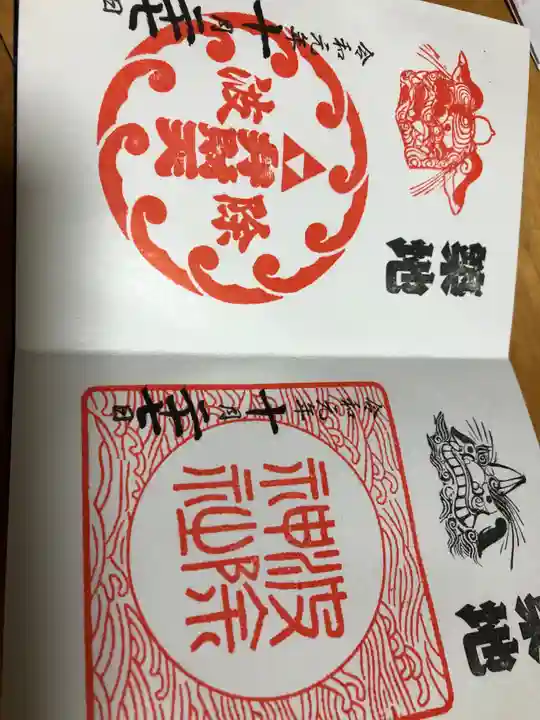 築地
波除
神社
令和元年
十月二十七日
築地
波除
辨財天
令和元年
十月二十七日